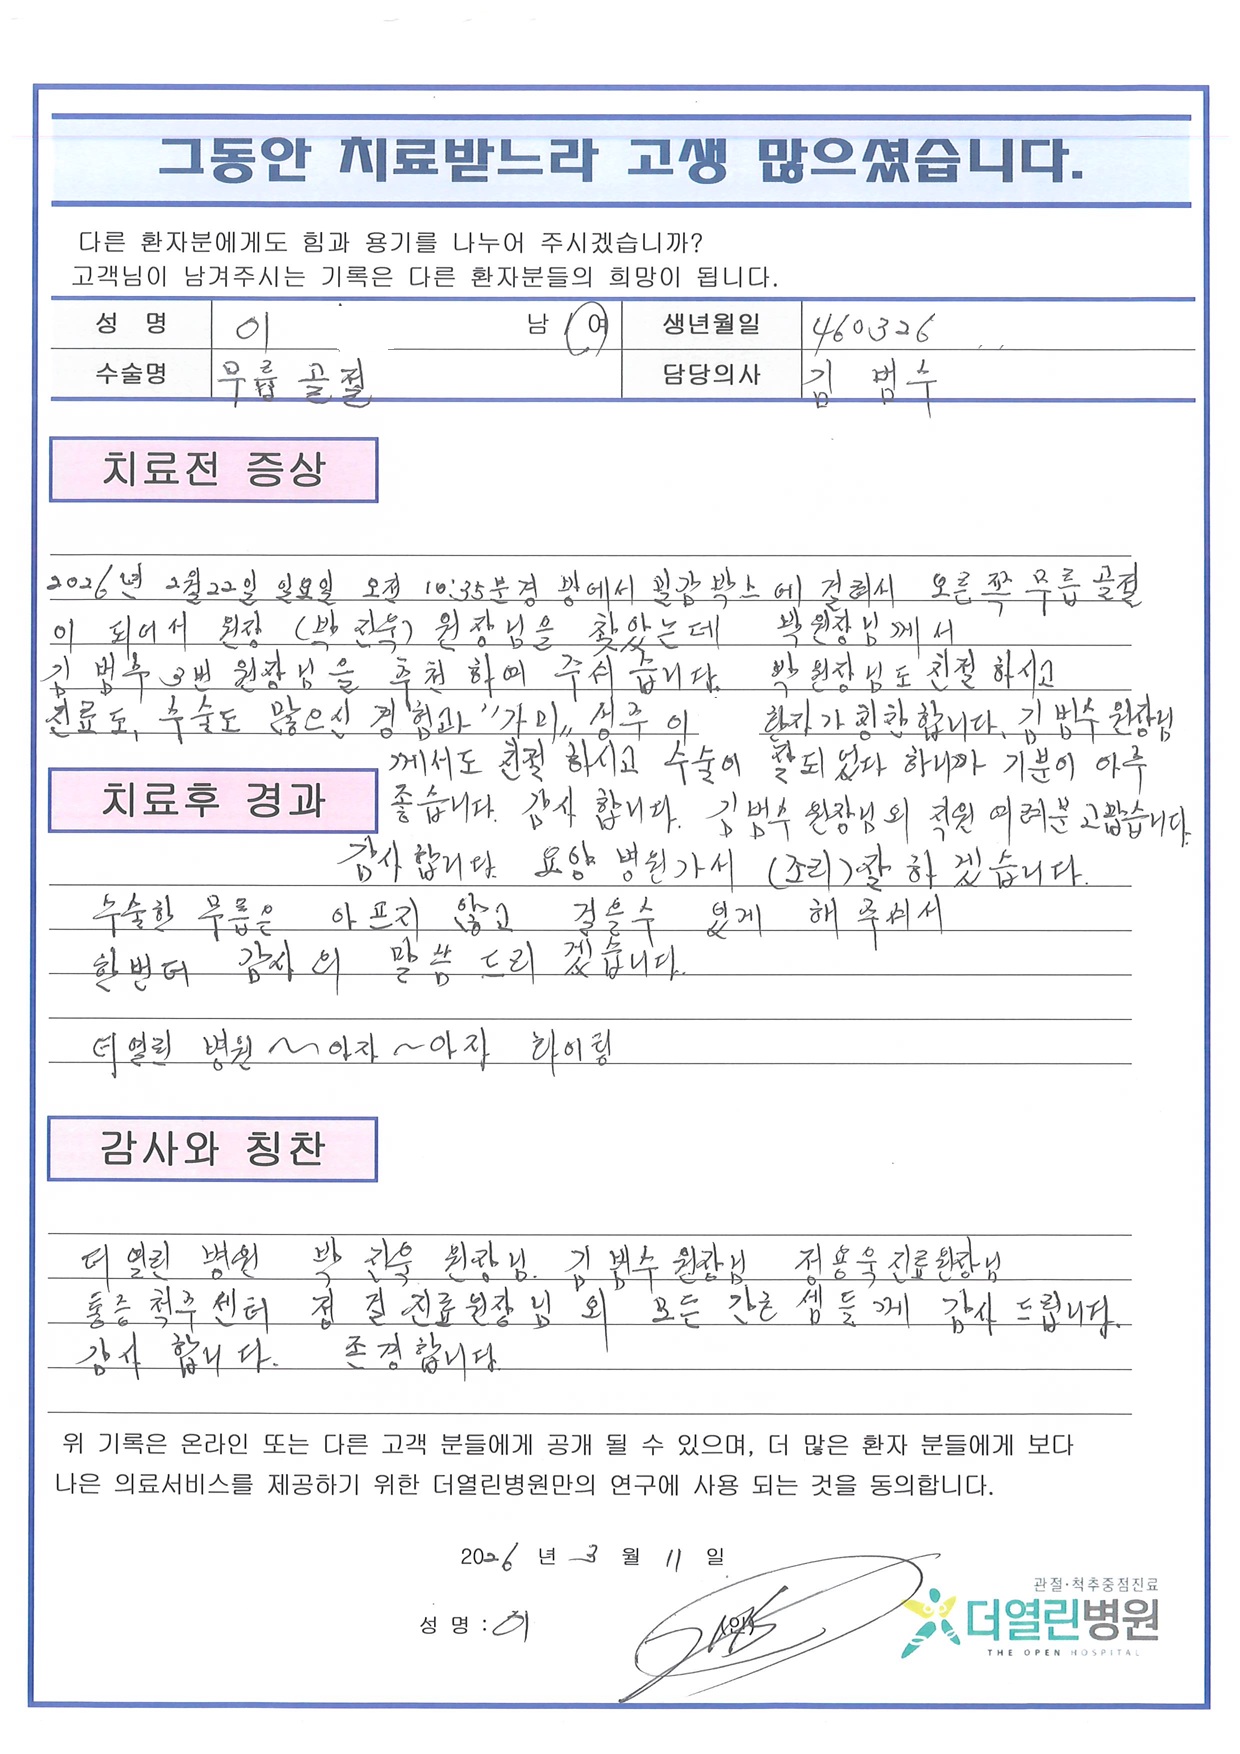 그동안 치료받느라 고생 많으셨습니다.
다른 환자분에게도 힘과 용기를 나누어 주시겠습니까?
고객님이 남겨주시는 기록은 다른 환자분들의 희망이 됩니다.
성 명 이 남 / 여 생년월일 460326
수술명 무릎 골절 담당의사 김 범수
치료전 증상
2026년 2월 22일 일요일 오전 10:35분경 방에서 물감박스에 걸려서 오른쪽 무릎 골절
이 되어서 원장 (박 진욱) 원장님을 찾았는데 박원장님께서
김 범수 3번 원장님을 추천 하여 주셔습니다. 박 원장님도 친절 하시고
진료도, 수술도 많으신 경험과 "가미" 성주 이 환자가 칭찬합니다. 김 범수 원장님
께서도 친절 하시고 수술이 잘되었다 하니까 기분이 아주
치료후 경과
좋습니다. 감사 합니다. 김 범수 원장님 외 직원 여러분 고맙습니다.
감사 합니다. 요양 병원가서 (조리)잘 하겠습니다.
수술한 무릎은 아프지 않고 걸을수 있게 해 주셔서
한번더 감사의 말씀 드리겠습니다.
더 열린 병원 ~~ 아자 ~ 아자 화이팅
감사와 칭찬
더 열린 병원 박 진욱 원장님. 김 범수 원장님 정용욱진료원장님
통증 척추센터 정 결 진료원장님 외 모든 간호 셈들께 감사 드립니다.
감사 합니다. 존경합니다.
위 기록은 온라인 또는 다른 고객 분들에게 공개 될 수 있으며, 더 많은 환자 분들에게 보다
나은 의료서비스를 제공하기 위한 더열린병원만의 연구에 사용 되는 것을 동의합니다.
2026 년 3 월 11 일
성 명 : 이 (인)
관절·척추중점진료
더열린병원
THE OPEN HOSPITAL